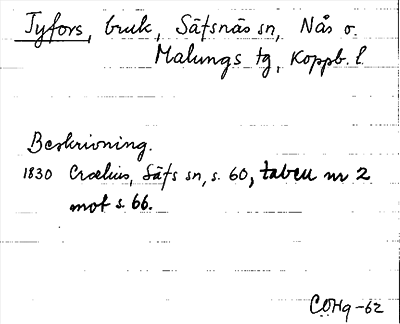 Tyfors, bruk, Säfsnäs sn, Nås o.
Malungs tg, Koppb. l.
Beskrivning.
1830 Crælius, Säfs sn, s. 60, tabell nr 2
mot s. 66.
COHq-62